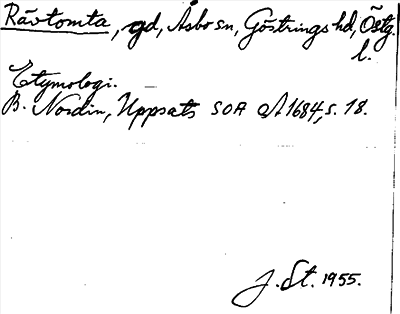 Rävtomta, gd, Åsbo sn, Göstrings hd, Östg.
l.
Etymologi.
B. Nordin, Uppsats SOA A 1684, s. 18.
J. St. 1955.